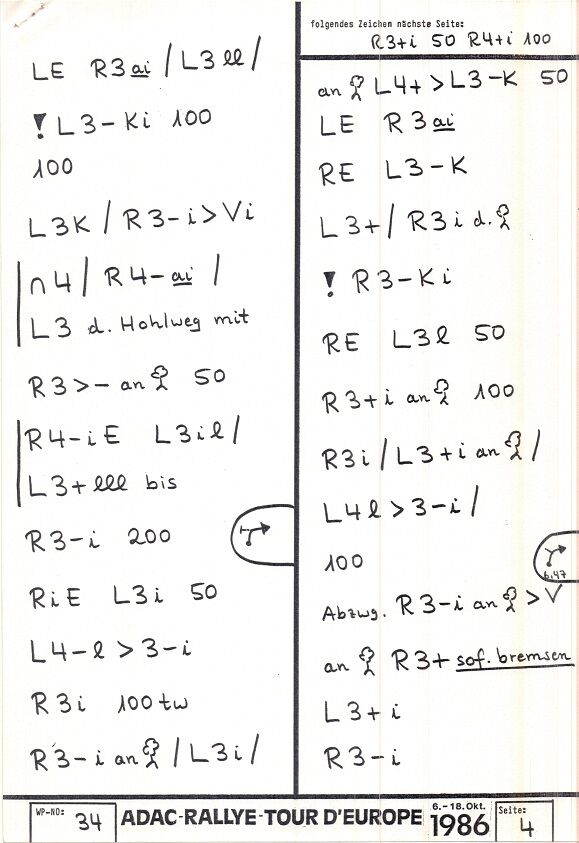 LE R3ai / L3ll /
! L3-Ki 100
100
L3K / R3-i > Vi
∩4 / R4-ai /
L3 d. Hohlweg mit
R3>- an 50
R4-iE L3il /
L3+lll bis
R3-i 200
RiE L3i 50
L4-l > 3-i
R3i 100tw
R3-i an / L3i /
folgendes Zeichen nächste Seite:
R3+i 50 R4+i 100
an L4+ > L3-K 50
LE R3ai
RE L3-K
L3+ / R3i d.
! R3-Ki
RE L3l 50
R3+i an 100
R3i / L3+i an /
L4l > 3-i /
100
6,47
Abzwg. R3-i an > V
an R3+ sof. bremsen
L3+i
R3-i
WP-NO: 34
ADAC-RALLYE-TOUR D'EUROPE
6.-18.Okt. 1986
Seite: 4